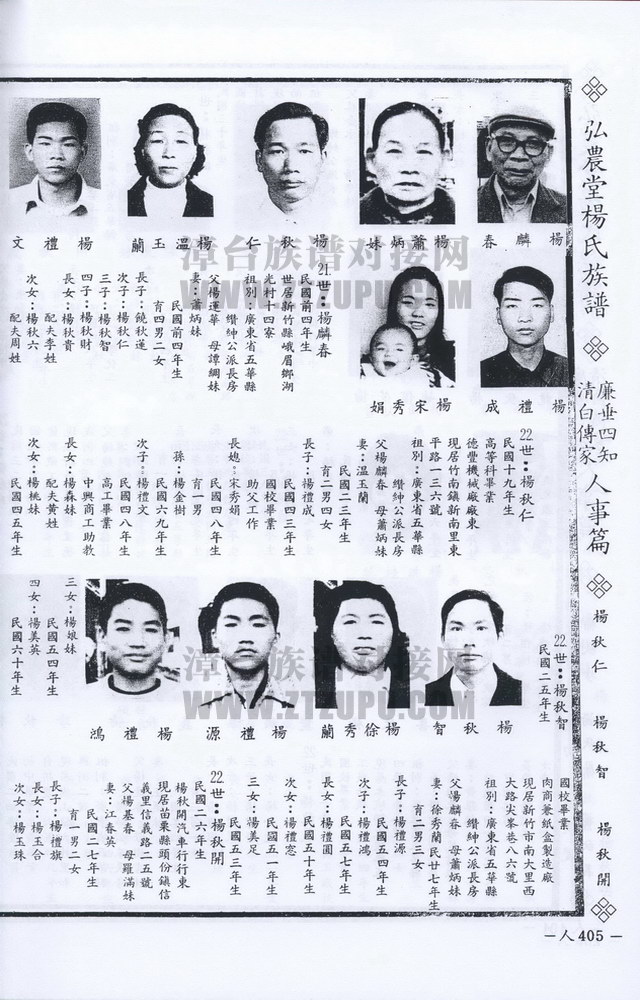 弘農堂楊氏族譜
廉垂四知
清白傳家
人事篇
楊秋仁
楊秋智
楊秋開
楊麟春
楊蕭炳妹
楊秋仁
楊溫玉蘭
楊禮文
楊禮成
楊宋秀娟
21.世：楊麟春
民國前四年生
世居新竹縣峨眉鄉湖
光村十四寮
祖別：廣東省五華縣
纘紳公派長房
父楊運華　母譚綢妹
妻：蕭炳妹
民國前四年生
育四男二女
長子：饒秋蓮
次子：楊秋仁
三子：楊秋智
四子：楊秋財
長女：楊秋貴
配夫李姓
次女：楊秋六
配夫周姓
22.世：楊秋仁
民國十九年生
高等科畢業
德豐機械廠廠東
現居竹南鎮新南里東
平路一三六號
祖別：廣東省五華縣
纘紳公派長房
父楊麟春　母蕭炳妹
妻：溫玉蘭
民國二三年生
育二男四女
長子：楊禮成
民國四三年生
國校畢業
助父工作
長媳：宋秀娟
民國四八年生
育一男
孫：楊金樹
民國六九年生
次子：楊禮文
民國四八年生
高工畢業
中興商工助教
長女：楊森妹
配夫黃姓
次女：楊桃妹
民國四五年生
三女：楊娘妹
民國五四年生
四女：楊美英
民國六十年生
22.世：楊秋智
民國二五年生
楊秋智
楊徐秀蘭
楊禮源
楊禮鴻
國校畢業
肉商兼紙盒製造廠
現居新竹市南大里西
大路尖峯巷八六號
祖別：廣東省五華縣
纘紳公派長房
父楊麟春　母蕭炳妹
妻：徐秀蘭民廿七年生
育二男三女
長子：楊禮源
民國五四年生
次子：楊禮鴻
民國五七年生
長女：楊禮圓
民國五十年生
次女：楊禮窓
民國五一年生
三女：楊美足
民國五三年生
22.世：楊秋開
民國二六年生
楊秋開汽車行行東
現居苗栗縣頭份鎮信
義里信義路二五號
父楊基春　母羅滿妹
妻：江春英
民國二七年生
育一男二女
長子：楊禮旗
長女：楊玉合
次女：楊玉珠
－人405－
漳台族谱对接网
WWW.ZTZUPU.COM
漳台族谱对接网
WWW.ZTZUPU.COM